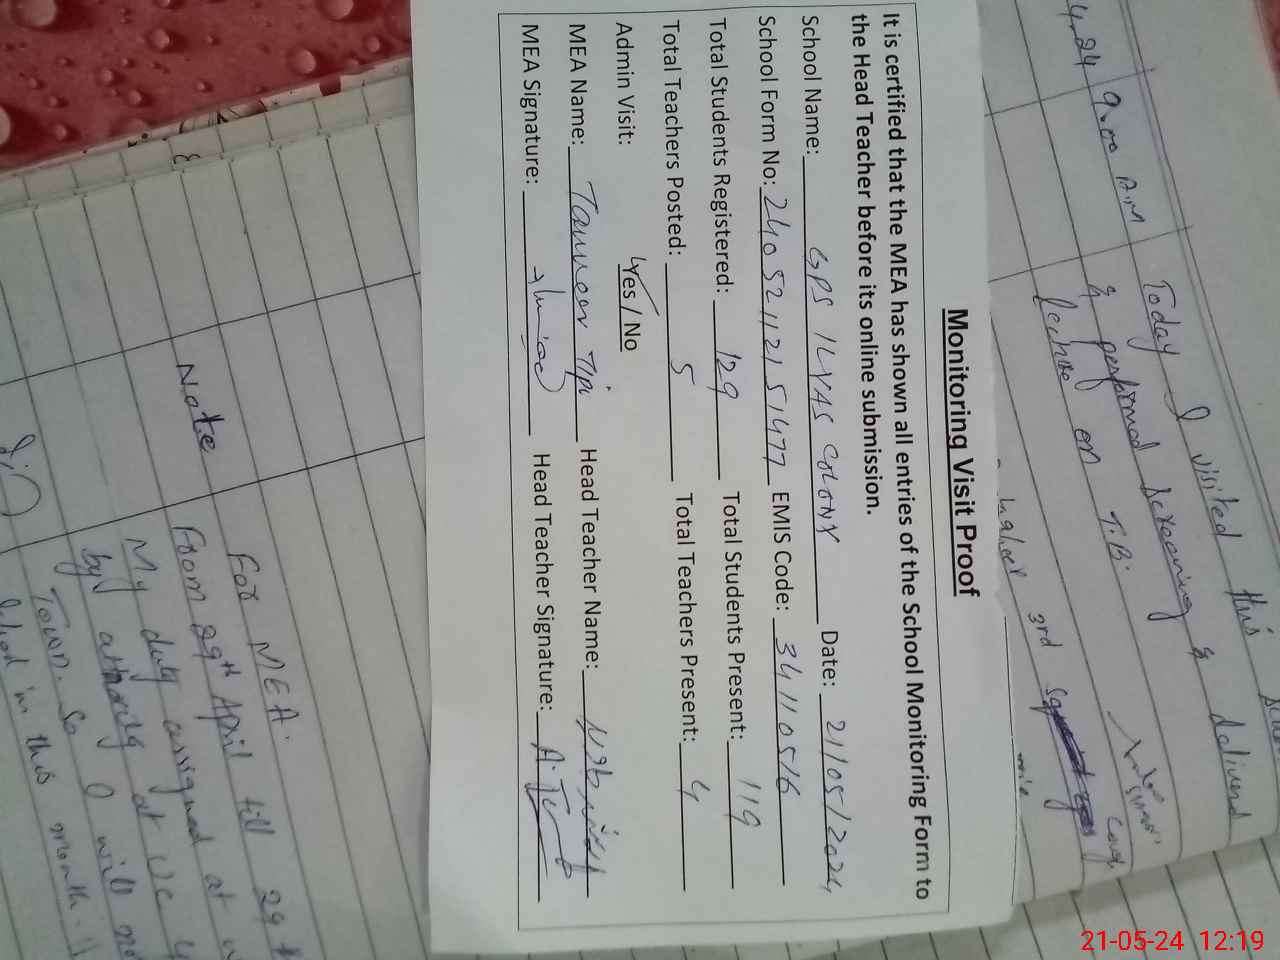 4.24
9.00 A.M
Today I visited this
& performed screening & delivered
lecture on T.B.
3rd
Monitoring Visit Proof
It is certified that the MEA has shown all entries of the School Monitoring Form to
the Head Teacher before its online submission.
School Name: GPS ILYAS COLONY Date: 21/05/2024,
School Form No: 24052112151477 EMIS Code: 34110516
Total Students Registered: 129 Total Students Present: 119
Total Teachers Posted: 5 Total Teachers Present: 4
Admin Visit: Yes / No
MEA Name: Head Teacher Name:
MEA Signature: Head Teacher Signature:
Note
For MEA.
From 29th April till 29
My duty assigned at
by at UC 4
Town. So I will no
in this month.
21-05-24 12:19